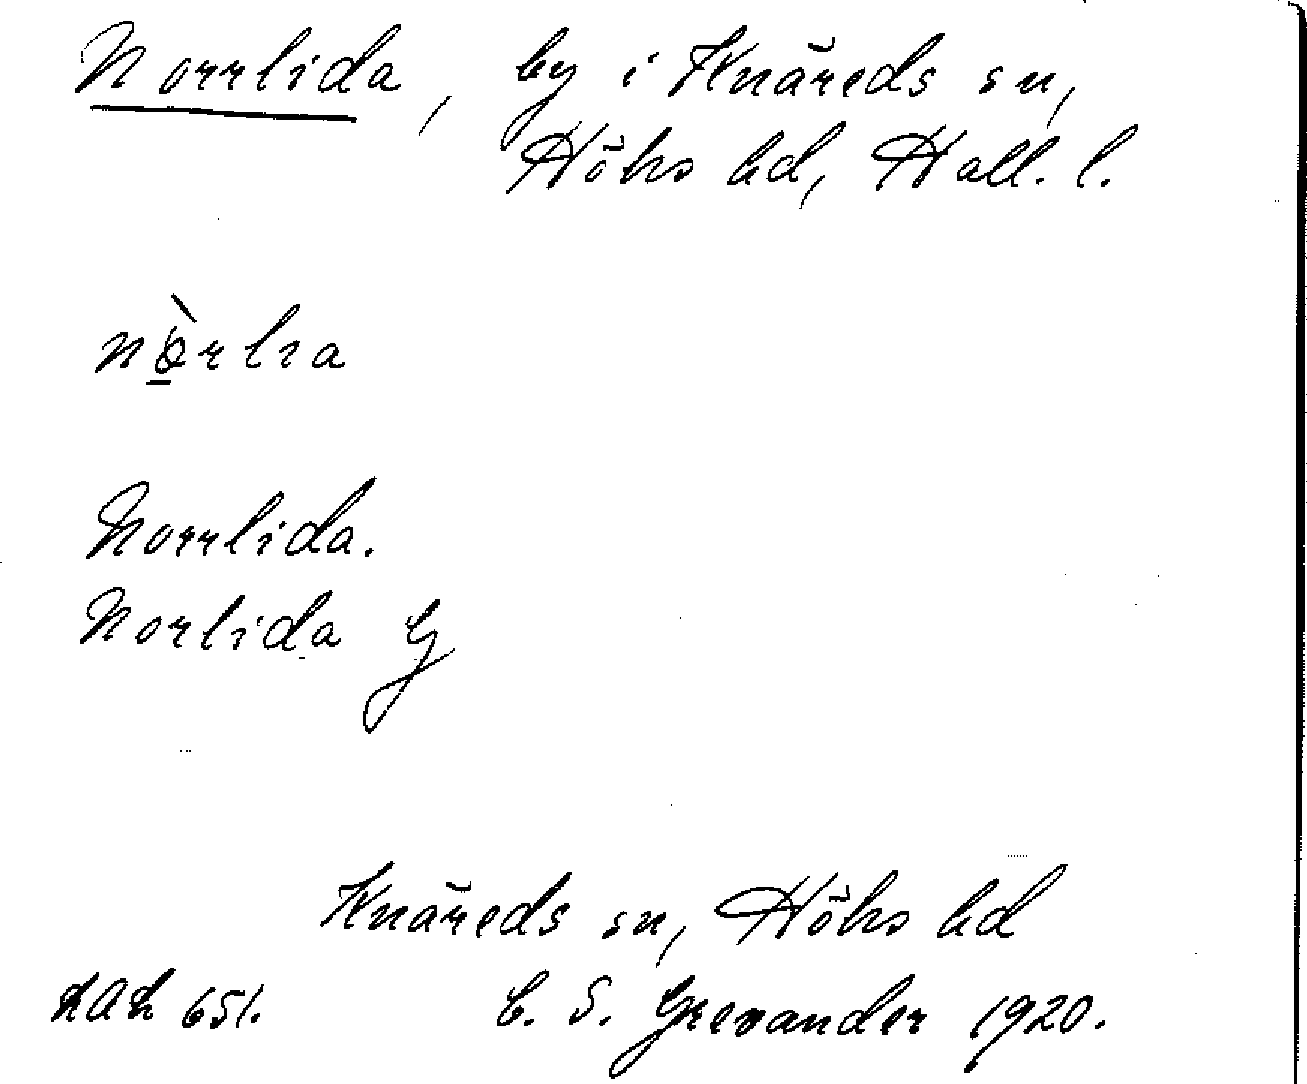 Norrlida, by i Knäreds sn,
Höks hd, Hall. l.
nò̱rlıa
Norrlida.
Norlida G
Knäreds sn, Höks hd
LAL 651. C. S. Grevander 1920.